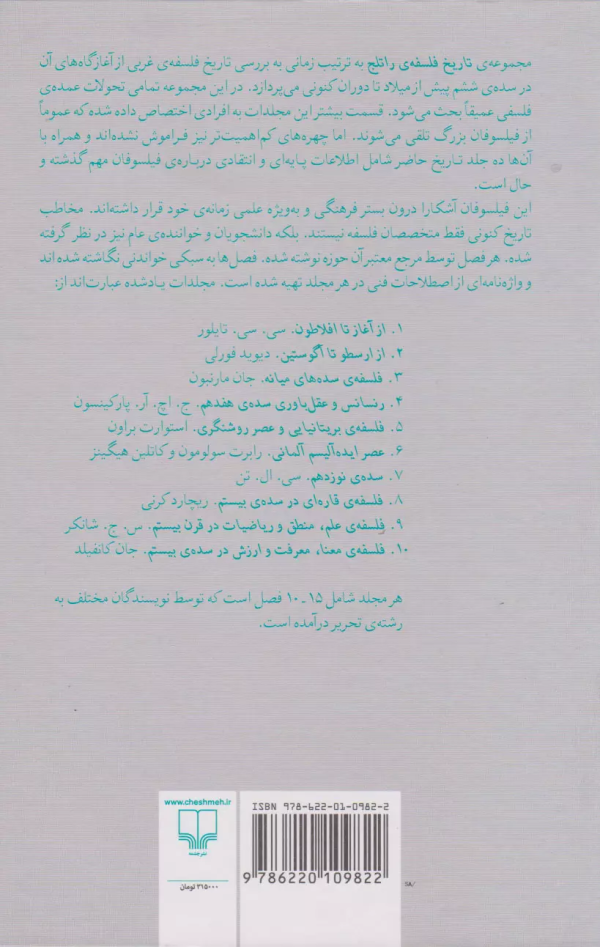 مجموعه‌ی تاریخ فلسفه‌ی راتلج به ترتیب زمانی به بررسی تاریخ فلسفه‌ی غربی از آغازگاه‌های آن
در سده‌ی ششم پیش از میلاد تا دوران کنونی می‌پردازد. در این مجموعه تمامی تحولات عمده‌ی
فلسفی عمیقاً بحث می‌شود. قسمت بیشتر این مجلدات به افرادی اختصاص داده شده که عموماً
از فیلسوفان بزرگ تلقی می‌شوند. اما چهره‌های کم‌اهمیت‌تر نیز فراموش نشده‌اند و همراه با
آن‌ها ده جلد تاریخ حاضر شامل اطلاعات پایه‌ای و انتقادی درباره‌ی فیلسوفان مهم گذشته و
حال است.
این فیلسوفان آشکارا درون بستر فرهنگی و به‌ویژه علمی زمانه‌ی خود قرار داشته‌اند. مخاطب
تاریخ کنونی فقط متخصصان فلسفه نیستند. بلکه دانشجویان و خواننده‌ی عام نیز در نظر گرفته
شده. هر فصل توسط مرجع معتبر آن حوزه نوشته شده. فصل‌ها به سبکی خواندنی نگاشته شده اند
و واژه‌نامه‌ای از اصطلاحات فنی در هر مجلد تهیه شده است. مجلدات یادشده عبارت‌اند از:
۱. از آغاز تا افلاطون. سی. سی. تایلور
۲. از ارسطو تا آگوستین. دیوید فورلی
۳. فلسفه‌ی سده‌های میانه. جان مارنبون
۴. رنسانس و عقل‌باوری سده‌ی هفدهم. ج. اچ. آر. پارکینسون
۵. فلسفه‌ی بریتانیایی و عصر روشنگری. استوارت براون
۶. عصر ایده‌آلیسم آلمانی. رابرت سولومون و کاتلین هیگینز
۷. سده‌ی نوزدهم. سی. ال. تن
۸. فلسفه‌ی قاره‌ای در سده‌ی بیستم. ریچارد کرنی
۹. فلسفه‌ی علم، منطق و ریاضیات در قرن بیستم. س. ج. شانکر
۱۰. فلسفه‌ی معنا، معرفت و ارزش در سده‌ی بیستم. جان کانفیلد
هر مجلد شامل ۱۵ـ۱۰ فصل است که توسط نویسندگان مختلف به
رشته‌ی تحریر درآمده است.
www.cheshmeh.ir
نشرچشمه
۳۱۵۰۰۰ تومان
ISBN 978-622-01-0982-2
9 786220 109822